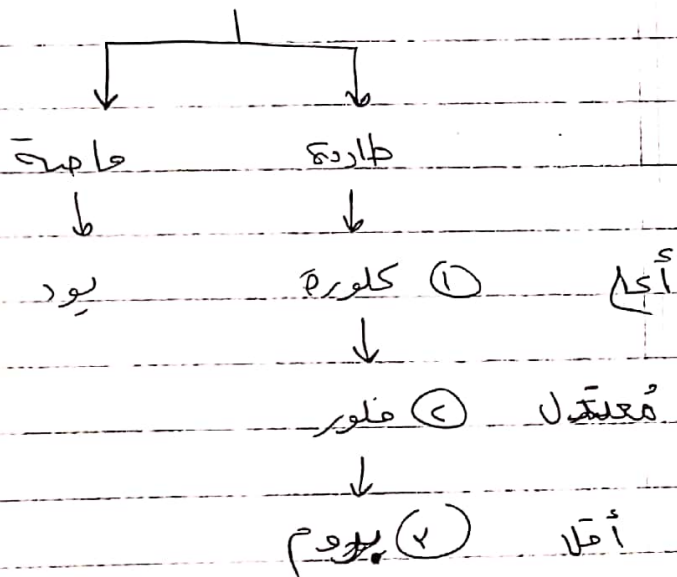 طاردة ماصة
① كلورة يود
مُعتدل ② فلور
أقل ③ بروم